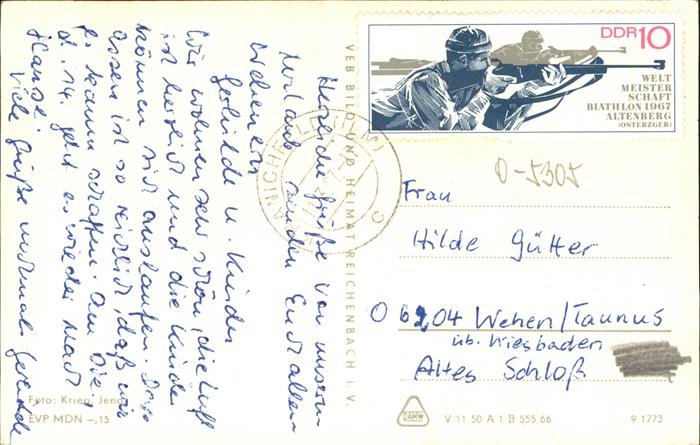 Herzliche Grüße von unserm
Urlaub senden Euch allen
Wehenern
Gerlinde u. Kinder
Wir wohnen sehr schön, die Luft
ist herrlich und die Kinder
können sich auslaufen. Das
Essen ist so reichlich, daß wir
es kaum schaffen. Am Die.,
d. 14. geht es wieder nach
Hause.
Viele Grüße nochmals Gerlinde
Foto: Krieg, Jena
EVP MDN –,15
VEB BILD UND HEIMAT REICHENBACH I. V.
DDR 10
WELT
MEISTER
SCHAFT
BIATHLON 1967
ALTENBERG
(OSTERZGEB)
0-5305
Frau
Hilde Gütter
6204 Wehen/Taunus
üb. Wiesbaden
Altes Schloß
V 11 50 A 1 B 555 66
9 1773